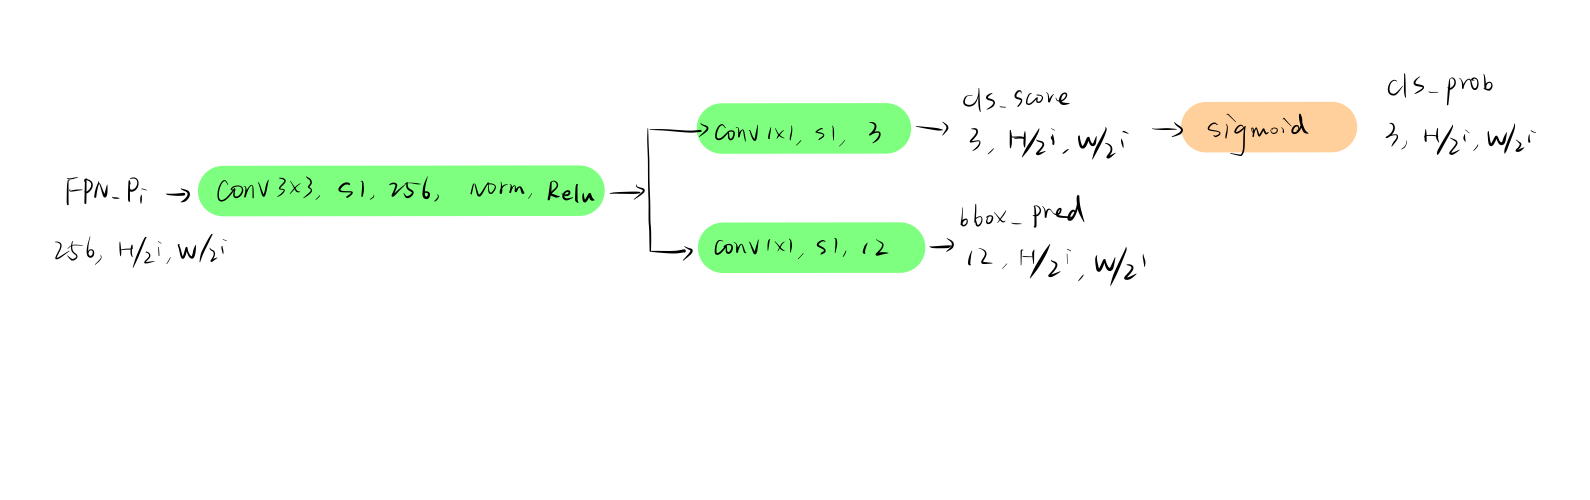 FPN_Pi
256, H/2i, W/2i
conv3x3, s1, 256, Norm, Relu
conv1x1, s1, 3
cls_score
3, H/2i, W/2i
sigmoid
cls_prob
3, H/2i, W/2i
conv1x1, s1, 12
bbox_pred
12, H/2i, W/2i